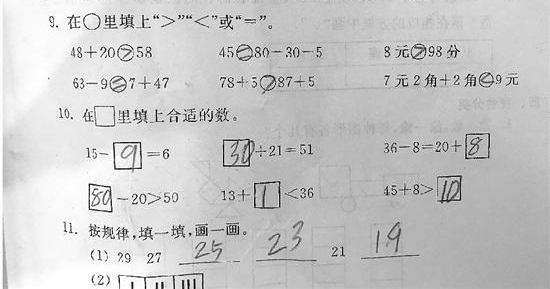 9. 在○里填上“>”“<”或“=”。
48+20>58 45=80-30-5 8元>98分
63-9=7+47 78+5 87+5 7元2角+2角<9元
10. 在□里填上合适的数。
15-9=6 30÷21=51 36-8=20+8
80-20>50 13+1<36 45+8>10
11. 按规律,填一填,画一画。
(1) 29 27 25 23 21 19
(2)